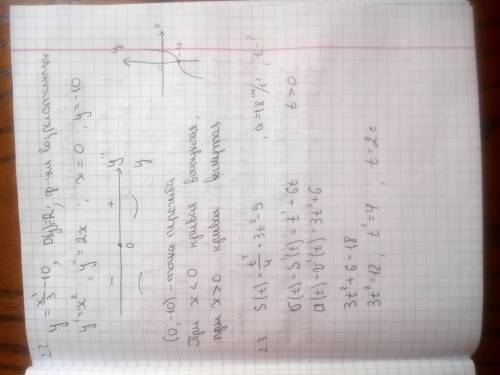 22. y = x³/3 - 10, D(y)=R; ф-ция возрастающая
y' = x²; y'' = 2x; x = 0, y = -10
- + y''
0 y
y x 0 -10
(0; -10) - точка перегиба
При x < 0 кривая выпуклая,
при x > 0 кривая вогнутая
23. S(t) = t⁴/4 + 3t² - 9, a = 18 м/с², t - ?
v(t) = S'(t) = t³ + 6t t > 0
a(t) = v'(t) = 3t² + 6
3t² + 6 = 18
3t² = 12, t² = 4, t = 2 c